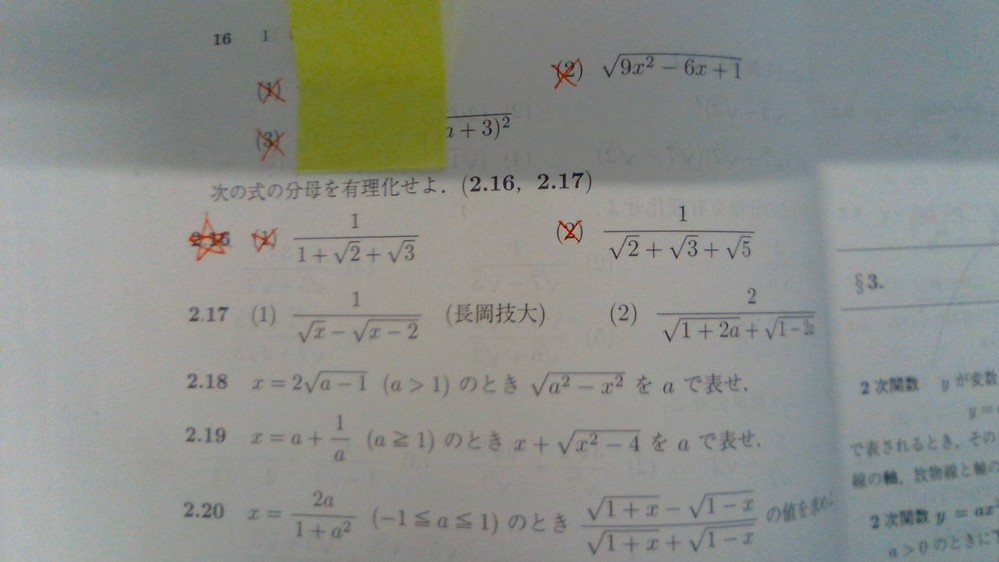 16 1
(1)
(2) √(9x² − 6x + 1)
(3) a + 3)²
次の式の分母を有理化せよ. (2.16, 2.17)
2.16 (1) 1/(1 + √2 + √3) (2) 1/(√2 + √3 + √5)
2.17 (1) 1/(√x − √(x − 2)) (長岡技大) (2) 2/(√(1 + 2a) + √(1 − 2a))
2.18 x = 2√(a − 1) (a > 1) のとき √(a² − x²) を a で表せ.
2.19 x = a + 1/a (a ≧ 1) のとき x + √(x² − 4) を a で表せ.
2.20 x = 2a/(1 + a²) (−1 ≦ a ≦ 1) のとき (√(1 + x) − √(1 − x))/(√(1 + x) + √(1 − x)) の値を求め
§3.
2次関数 y が変数
y =
で表されるとき, その
線の軸, 放物線と軸の
2次関数 y = ax²
a > 0 のときに